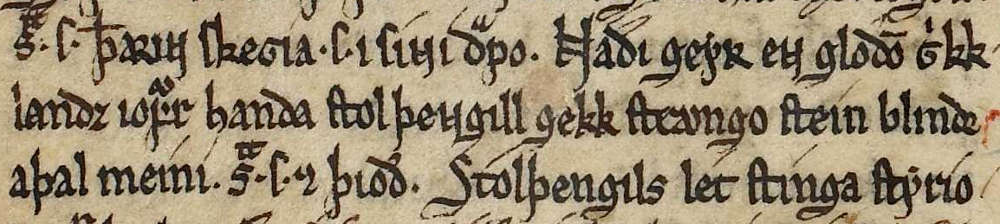 Sᵃ. s. Þarin skegia. s. i sini dᵃpo. Nadi geyʀ en glodō gⁱkk
landz iofᷓr handa ſtolþengill gekk ſtrongo ſtein blindr
aþal meini. Sᵃ. s. ⁊ þiod̄. Stolþengils let ſtinga ſtyrio